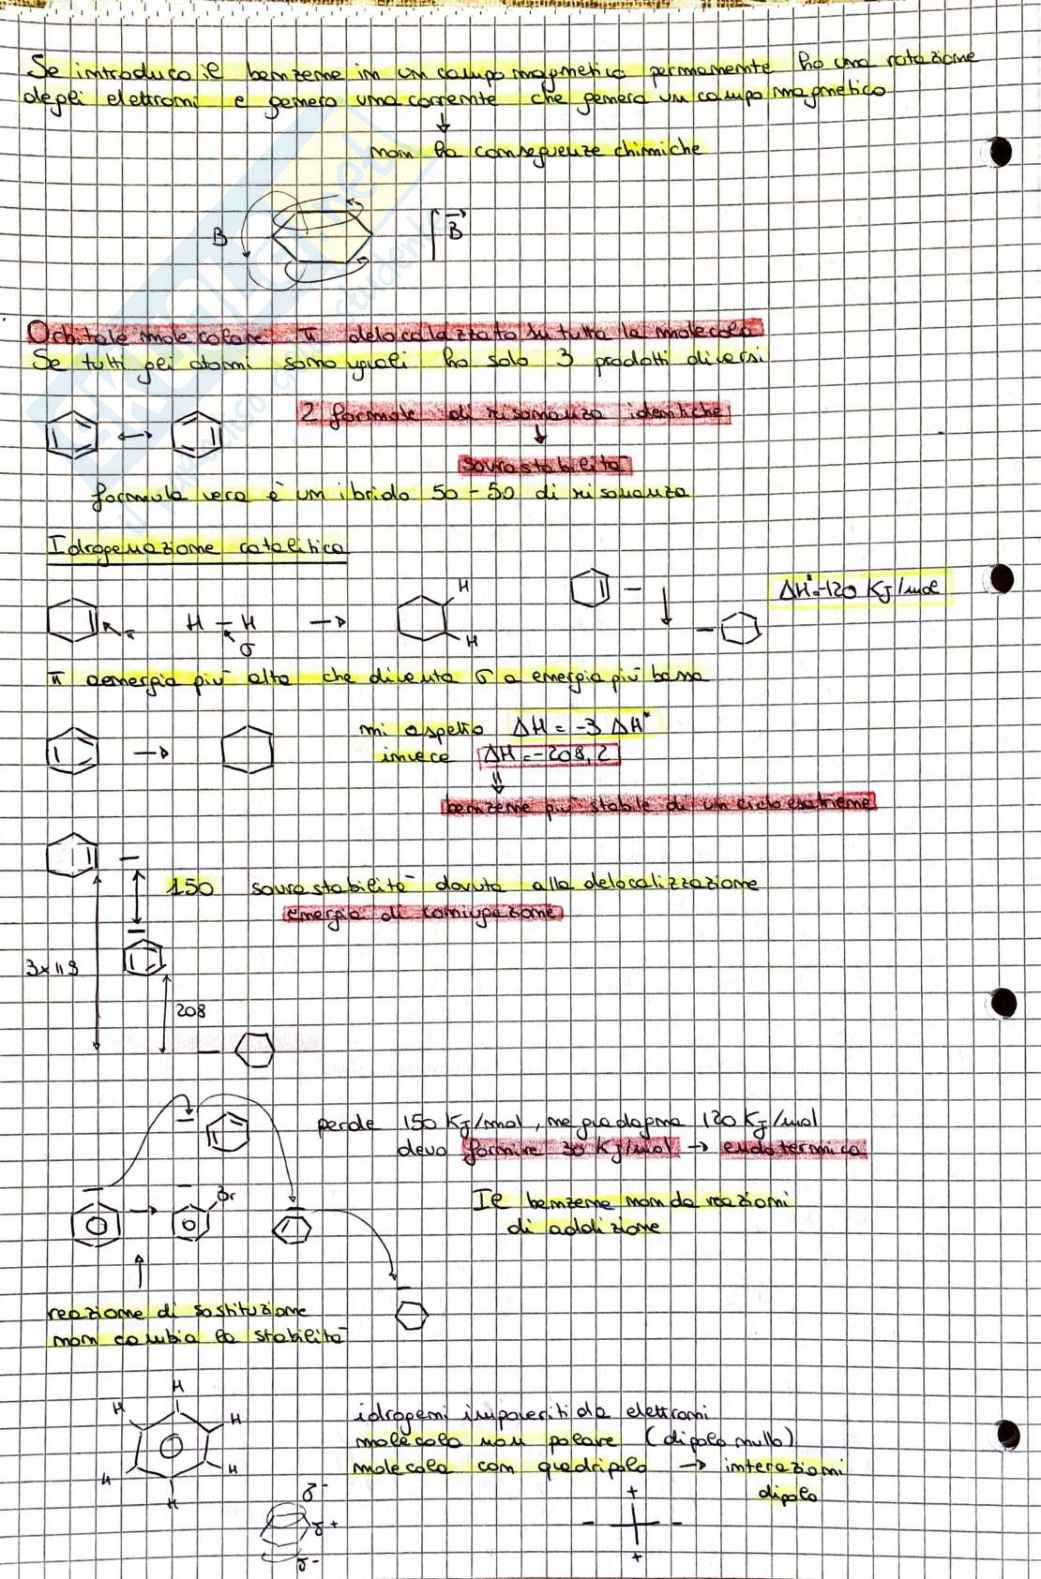 Se introduco il benzene in un campo magnetico permanente ho una rotazione
degli elettroni e genero una corrente che genera un campo magnetico
non ha conseguenze chimiche
B
B
Orbitale molecolare π delocalizzato su tutta la molecola
Se tutti gli atomi sono uguali ho solo 3 prodotti diversi
2 formule di risonanza identiche
sovrastabilità
formula vera è un ibrido 50-50 di risonanza
Idrogenazione catalitica
H
ΔH°=-120 KJ/mol
H - H
H
σ
π a energia più alta che diventa σ a energia più bassa
mi aspetto ΔH = -3 ΔH°
invece ΔH=-208,2
benzene più stabile di un cicloesatriene
150 sovrastabilità dovuta alla delocalizzazione
energia di coniugazione
3x119
208
perde 150 KJ/mol, ne guadagna 120 KJ/mol
devo fornire 30 KJ/mol → endotermica
Br
Il benzene non dà reazioni
di addizione
reazione di sostituzione
non cambia la stabilità
H
H
H
H
H
H
idrogeni impoveriti da elettroni
molecola non polare (dipolo nullo)
molecola con quadripolo → interazioni
dipolo
δ-
δ+
δ-
+
- -
+